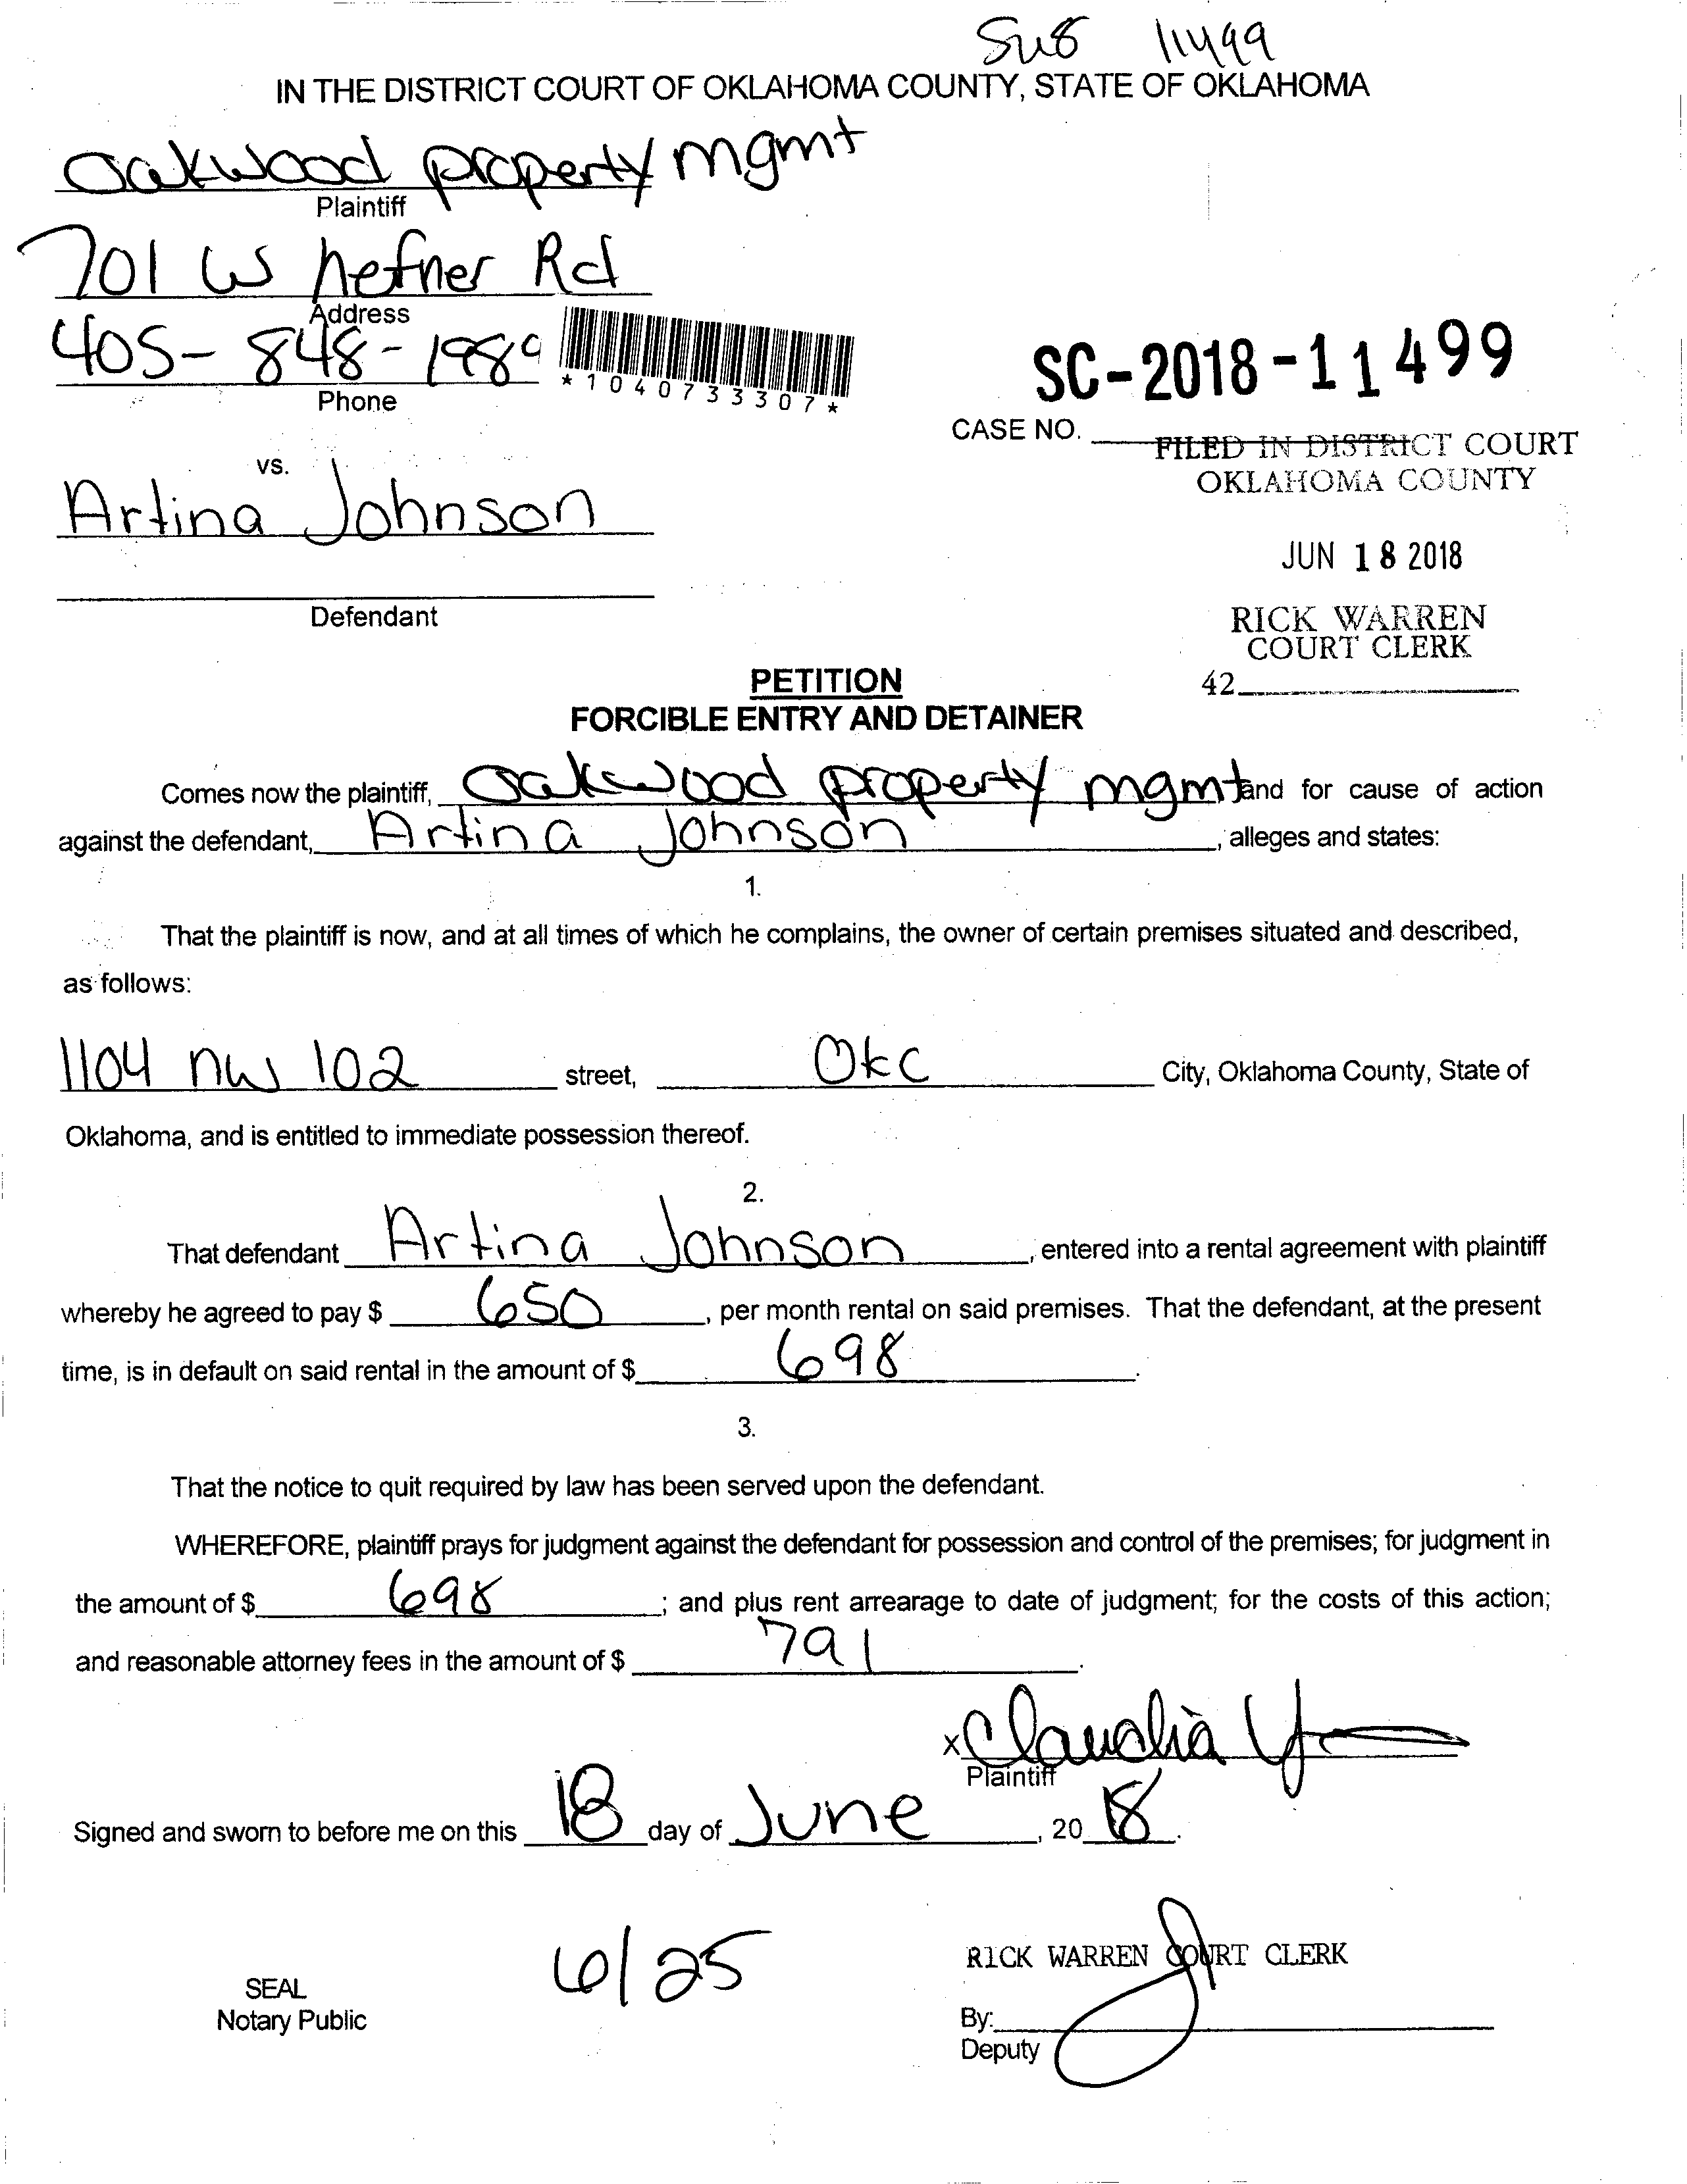 11499
IN THE DISTRICT COURT OF OKLAHOMA COUNTY, STATE OF OKLAHOMA
Oakwood property mgmt
Plaintiff
701 W hefner Rd
Address
405-848-1989
Phone
*1040733307*
SC-2018-11499
CASE NO.
FILED IN DISTRICT COURT
OKLAHOMA COUNTY
vs.
Artina Johnson
JUN 18 2018
Defendant
RICK WARREN
COURT CLERK
42
PETITION
FORCIBLE ENTRY AND DETAINER
Comes now the plaintiff, Oakwood property mgmt and for cause of action
against the defendant, Artina Johnson, alleges and states:
1.
That the plaintiff is now, and at all times of which he complains, the owner of certain premises situated and described,
as follows:
1104 nw 102 street, Okc City, Oklahoma County, State of
Oklahoma, and is entitled to immediate possession thereof.
2.
That defendant Artina Johnson, entered into a rental agreement with plaintiff
whereby he agreed to pay $ 650, per month rental on said premises. That the defendant, at the present
time, is in default on said rental in the amount of $ 698.
3.
That the notice to quit required by law has been served upon the defendant.
WHEREFORE, plaintiff prays for judgment against the defendant for possession and control of the premises; for judgment in
the amount of $ 698; and plus rent arrearage to date of judgment; for the costs of this action;
and reasonable attorney fees in the amount of $ 791.
x Claudia
Plaintiff
Signed and sworn to before me on this 18 day of June, 2018.
6/25
RICK WARREN COURT CLERK
SEAL
Notary Public
By:
Deputy